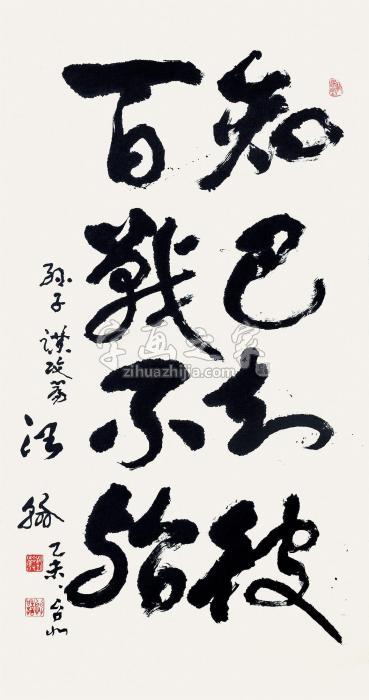 知己知彼
百戰不殆
孫子謀攻篇
乙未·台北
字画之家
zihuazhijia.com